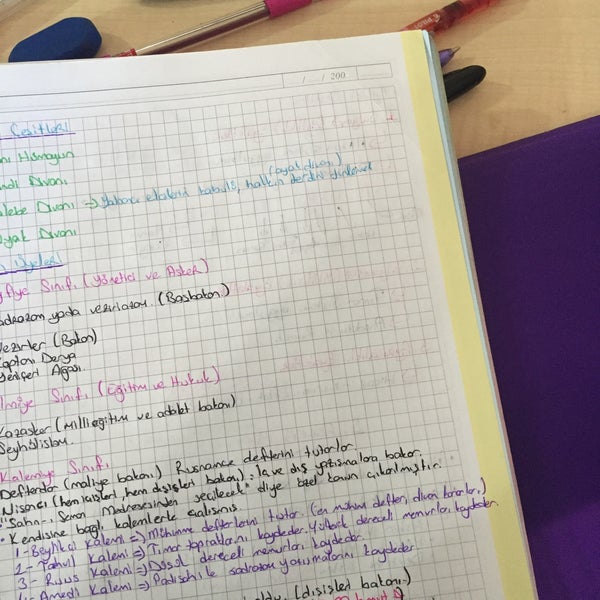 / / 200
Çeşitleri
Hümayun
Divanı
Divanı => Yabancı elçilerin kabulü, halkın derdini dinlemek
(ayak divanı)
Ayak Divanı
Üyeleri
Sınıfı (Yönetici ve Asker)
yada veziriazam (Başbakan)
Vezirler (Bakan)
Kaptanı Derya
Yeniçeri Ağası
İlmiye Sınıfı (Eğitim ve Hukuk)
Kazasker (Milli eğitim ve adalet bakanı)
Şeyhülislam
Kalemiye Sınıfı
Defterdar (maliye bakanı) Rusnamce defterini tutarlar
Nişancı (hem içişleri, hem dışişleri bakanı): iç ve dış yazışmalara bakar.
"Sahn-ı Seman Medresesinden seçilecek" diye özel kanun çıkarılmıştır.
Kendisine bağlı kalemlerle çalışmış.
1- Beylikçi Kalemi => Mühimme defterlerini tutar. (en mühim defter, divan kararları)
2- Tahvil Kalemi => Tımar topraklarını kaydeder. Yüksek dereceli memurları kaydeder
3- Rüus Kalemi => Düşük dereceli memurları kaydeder
4- Amedi Kalemi => Padişah ile sadrazam yazışmalarını kaydeder
(dışişleri bakanı)